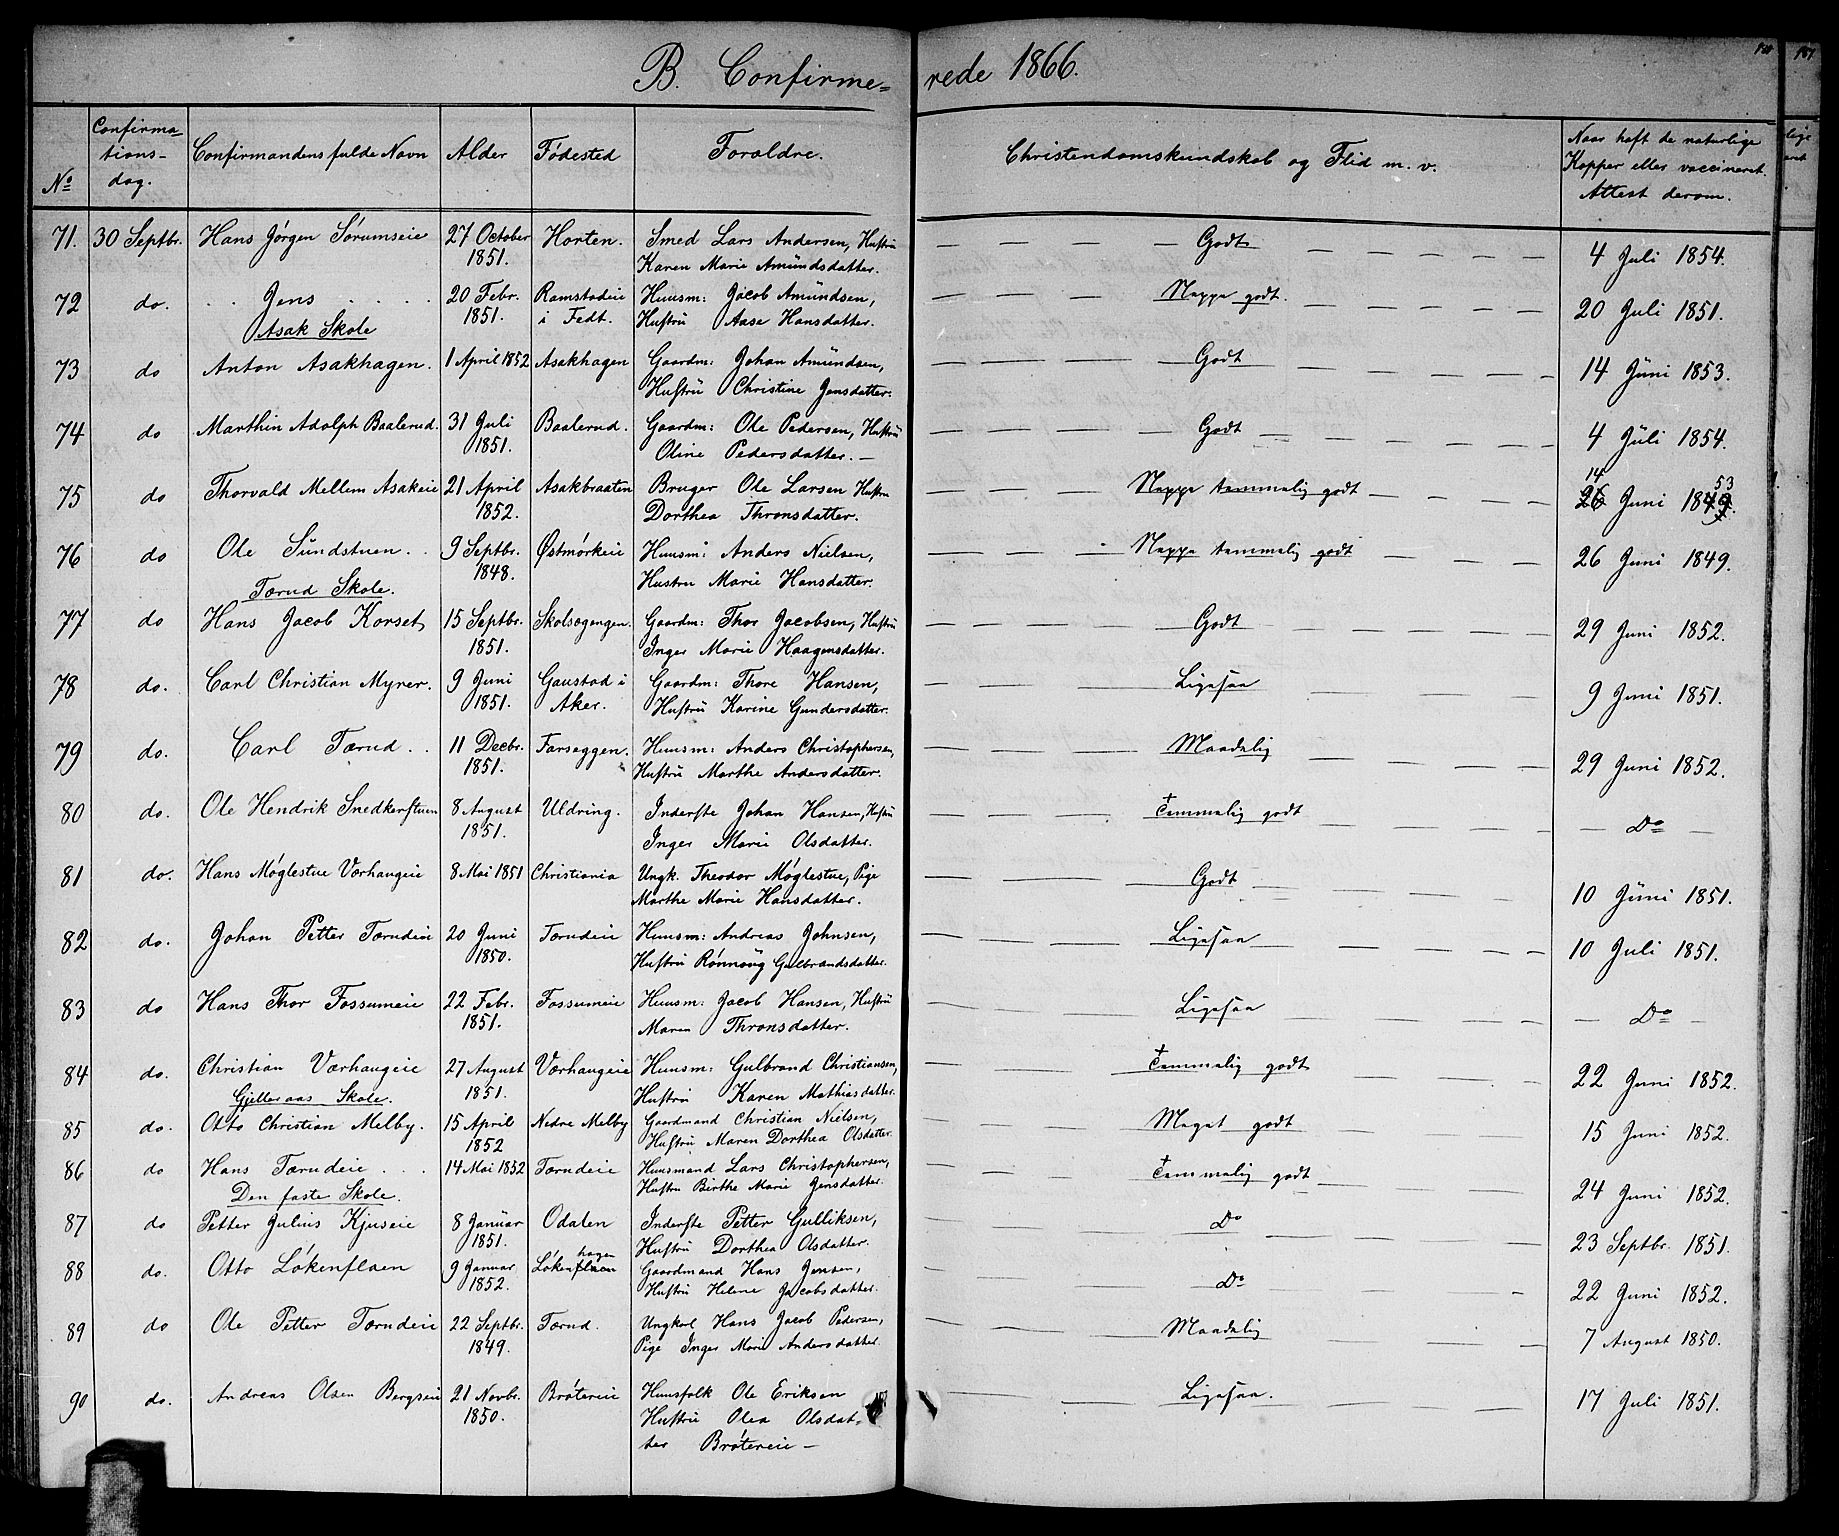 B. Confirme= rede 1866.
No Confirma=tions-dag. Confirmandens fulde Navn Alder Fødested Foraldre. Christendomskundskab og Flid m. v. Naar haft de naturlige Kopper eller vaccineret. Attest derom.
71. 30 Septbr. Hans Jørgen Sørumseie 27 October 1851. Horten. Smed Lars Andersen, Hustru Karen Marie Amundsdatter. Godt 4 Juli 1854.
72 do. Jens 20 Febr. 1851. Ramstadeie i Fedt. Huusm: Jacob Amundsen, Hustru Aase Hansdatter. Neppe godt. 20 Juli 1851.
Asak Skole
73 do Anton Asakhagen. 1 April 1852 Asakhagen Gaardm: Johan Amundsen, Hustru Christine Jensdatter. Godt 14 Juni 1853.
74 do Marthin Adolph Baalerud. 31 Juli 1851. Baalerud. Gaardm: Ole Pedersen, Hustru Oline Pedersdatter. — Godt 4 Juli 1854.
75 do Thorvald Mellem Asakeie 21 April 1852. Asakbraaten Bruger Ole Larsen Hustru Dorthea Thronsdatter. Neppe temmelig godt 14 26 Juni 1849. 53
76 do Ole Sundstuen. 9 Septbr. 1848. Østmørkeie Huusm: Anders Nielsen, Hustru Marie Hansdatter. Neppe temmelig godt 26 Juni 1849.
Tærud Skole.
77 do Hans Jacob Korset 15 Septbr. 1851. Skolsøgengen. Gaardm: Thor Jacobsen, Hustru Inger Marie Haagensdatter. Godt 29 Juni 1852.
78 do. Carl Christian Myrer. 9 Juni 1851. Gaustad i Aker. Gaardm: Thore Hansen, Hustru Karine Gundersdatter. Ligesaa 9 Juni 1851.
79 do. Carl Tærud 11 Decbr. 1851. Farseggen. Huusm: Anders Christophersen, Hustru Marthe Andersdatter. Maadelig 29 Juni 1852.
80 do. Ole Hendrik Snedkerstuen 8 August 1851. Uldring. Inderste Johan Hansen, Hustru Inger Marie Olsdatter. temmelig godt Do
81 do. Hans MøglestueVærhaugeie 8 Mai 1851 Christiania Ungk. Theodor Møglestue, Pige Marthe Marie Hansdatter. Godt 10 Juni 1851.
82 do. Johan Petter Tærudeie 20 Juni 1850. Tærudeie Huusm: Andreas Johnsen, Hustru Rønnaug Gulbrandsdatter. Ligesaa 10 Juli 1851.
83 do Hans Thor Fossumeie 22 Febr. 1851. Fossumeie Huusm: Jacob Hansen, Hustru Maren Thronsdatter. Ligesaa Do
84 do. Christian Værhaugeie 27 August 1851. Værhaugeie Huusm: Gulbrand Christiansen, Hustru Karen Mathiasdatter. temmelig godt 22 Juni 1852.
Gjelleraas Skole.
85 do. Otto Christian Melby. 15 April 1852 Nedre Melby Gaardmand Christian Nielsen, Hustru Maren Dorthea Olsdatter. Meget godt 15 Juni 1852.
86 do Hans Tærudeie 14 Mai 1852 Tærudeie Huusmand Lars Christophersen, Hustru Birthe Marie Jensdatter. temmelig godt 24 Juni 1852.
Den faste Skole.
87 do Petter Julius Kjuseie 8 Januar 1851. Odalen Inderste Petter Gulliksen, Hustru Dorthea Olsdatter. Do 23 Septbr. 1851.
88 do. Otto Løkenflaen 9 Januar 1852. Løkenflaen hagen Gaardmand Hans Jensen, Hustru Helene Jacobsdatter. Do 22 Juni 1852.
89 do Ole Petter Tærudeie 22 Septbr. 1849. Tærud. Ungkarl Hans Jacob Pedersen, Pige Inger Marie Andersdatter. Maadelig 7 August 1850.
90 do. Andreas Olsen Bergseie 21 Novbr. 1850. Bråtereie Huusfolk Ole Eriksen Hustru Olea Olsdat=ter Bråtereie — Ligesaa. 17 Juli 1851.